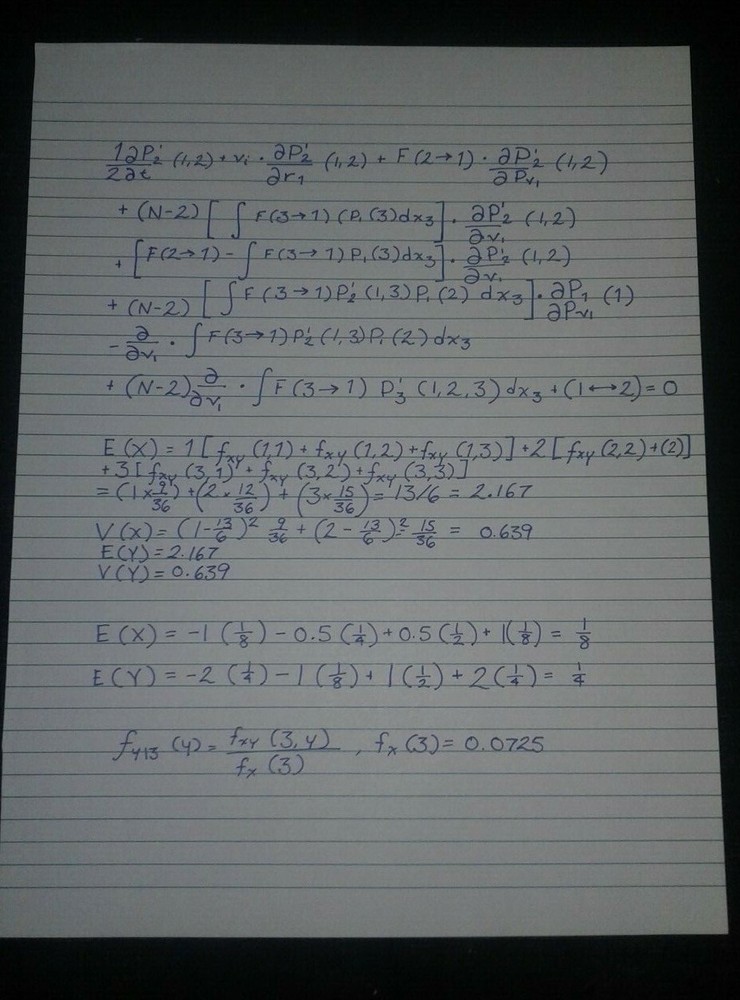 1/2 ∂P₂'/∂t (1,2) + vᵢ · ∂P₂'/∂r₁ (1,2) + F(2→1) · ∂P₂'/∂Pv₁ (1,2)
+ (N-2) [ ∫ F(3→1) (P₁(3)dx₃ ] · ∂P₂'/∂v₁ (1,2)
+ [ F(2→1) - ∫ F(3→1) P₁(3)dx₃ ] · ∂P₂'/∂v₁ (1,2)
+ (N-2) [ ∫ F(3→1) P₂'(1,3) P₁(2) dx₃ ] · ∂P₁/∂Pv₁ (1)
- ∂/∂v₁ · ∫ F(3→1) P₂'(1,3) P₁(2) dx₃
+ (N-2) ∂/∂v₁ · ∫ F(3→1) P₃'(1,2,3) dx₃ + (1↔2) = 0
E(X) = 1[fxy(1,1) + fxy(1,2) + fxy(1,3)] + 2[fxy(2,2) + (2)]
+ 3[fxy(3,1) + fxy(3,2) + fxy(3,3)]
= (1 × 9/36) + (2 × 12/36) + (3 × 15/36) = 13/6 = 2.167
V(X) = (1 - 13/6)² 9/36 + (2 - 13/6)² = 15/36 = 0.639
E(Y) = 2.167
V(Y) = 0.639
E(X) = -1(1/8) - 0.5(1/4) + 0.5(1/2) + 1(1/8) = 1/8
E(Y) = -2(1/4) - 1(1/8) + 1(1/2) + 2(1/4) = 1/4
fY|3(y) = fxy(3,y)/fx(3) , fx(3) = 0.0725